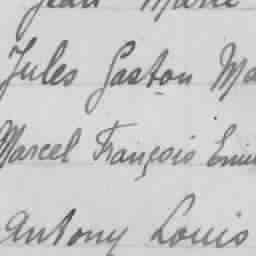 Jean Marie
Jules Gaston Ma
Marcel François Emi
Antony Louis